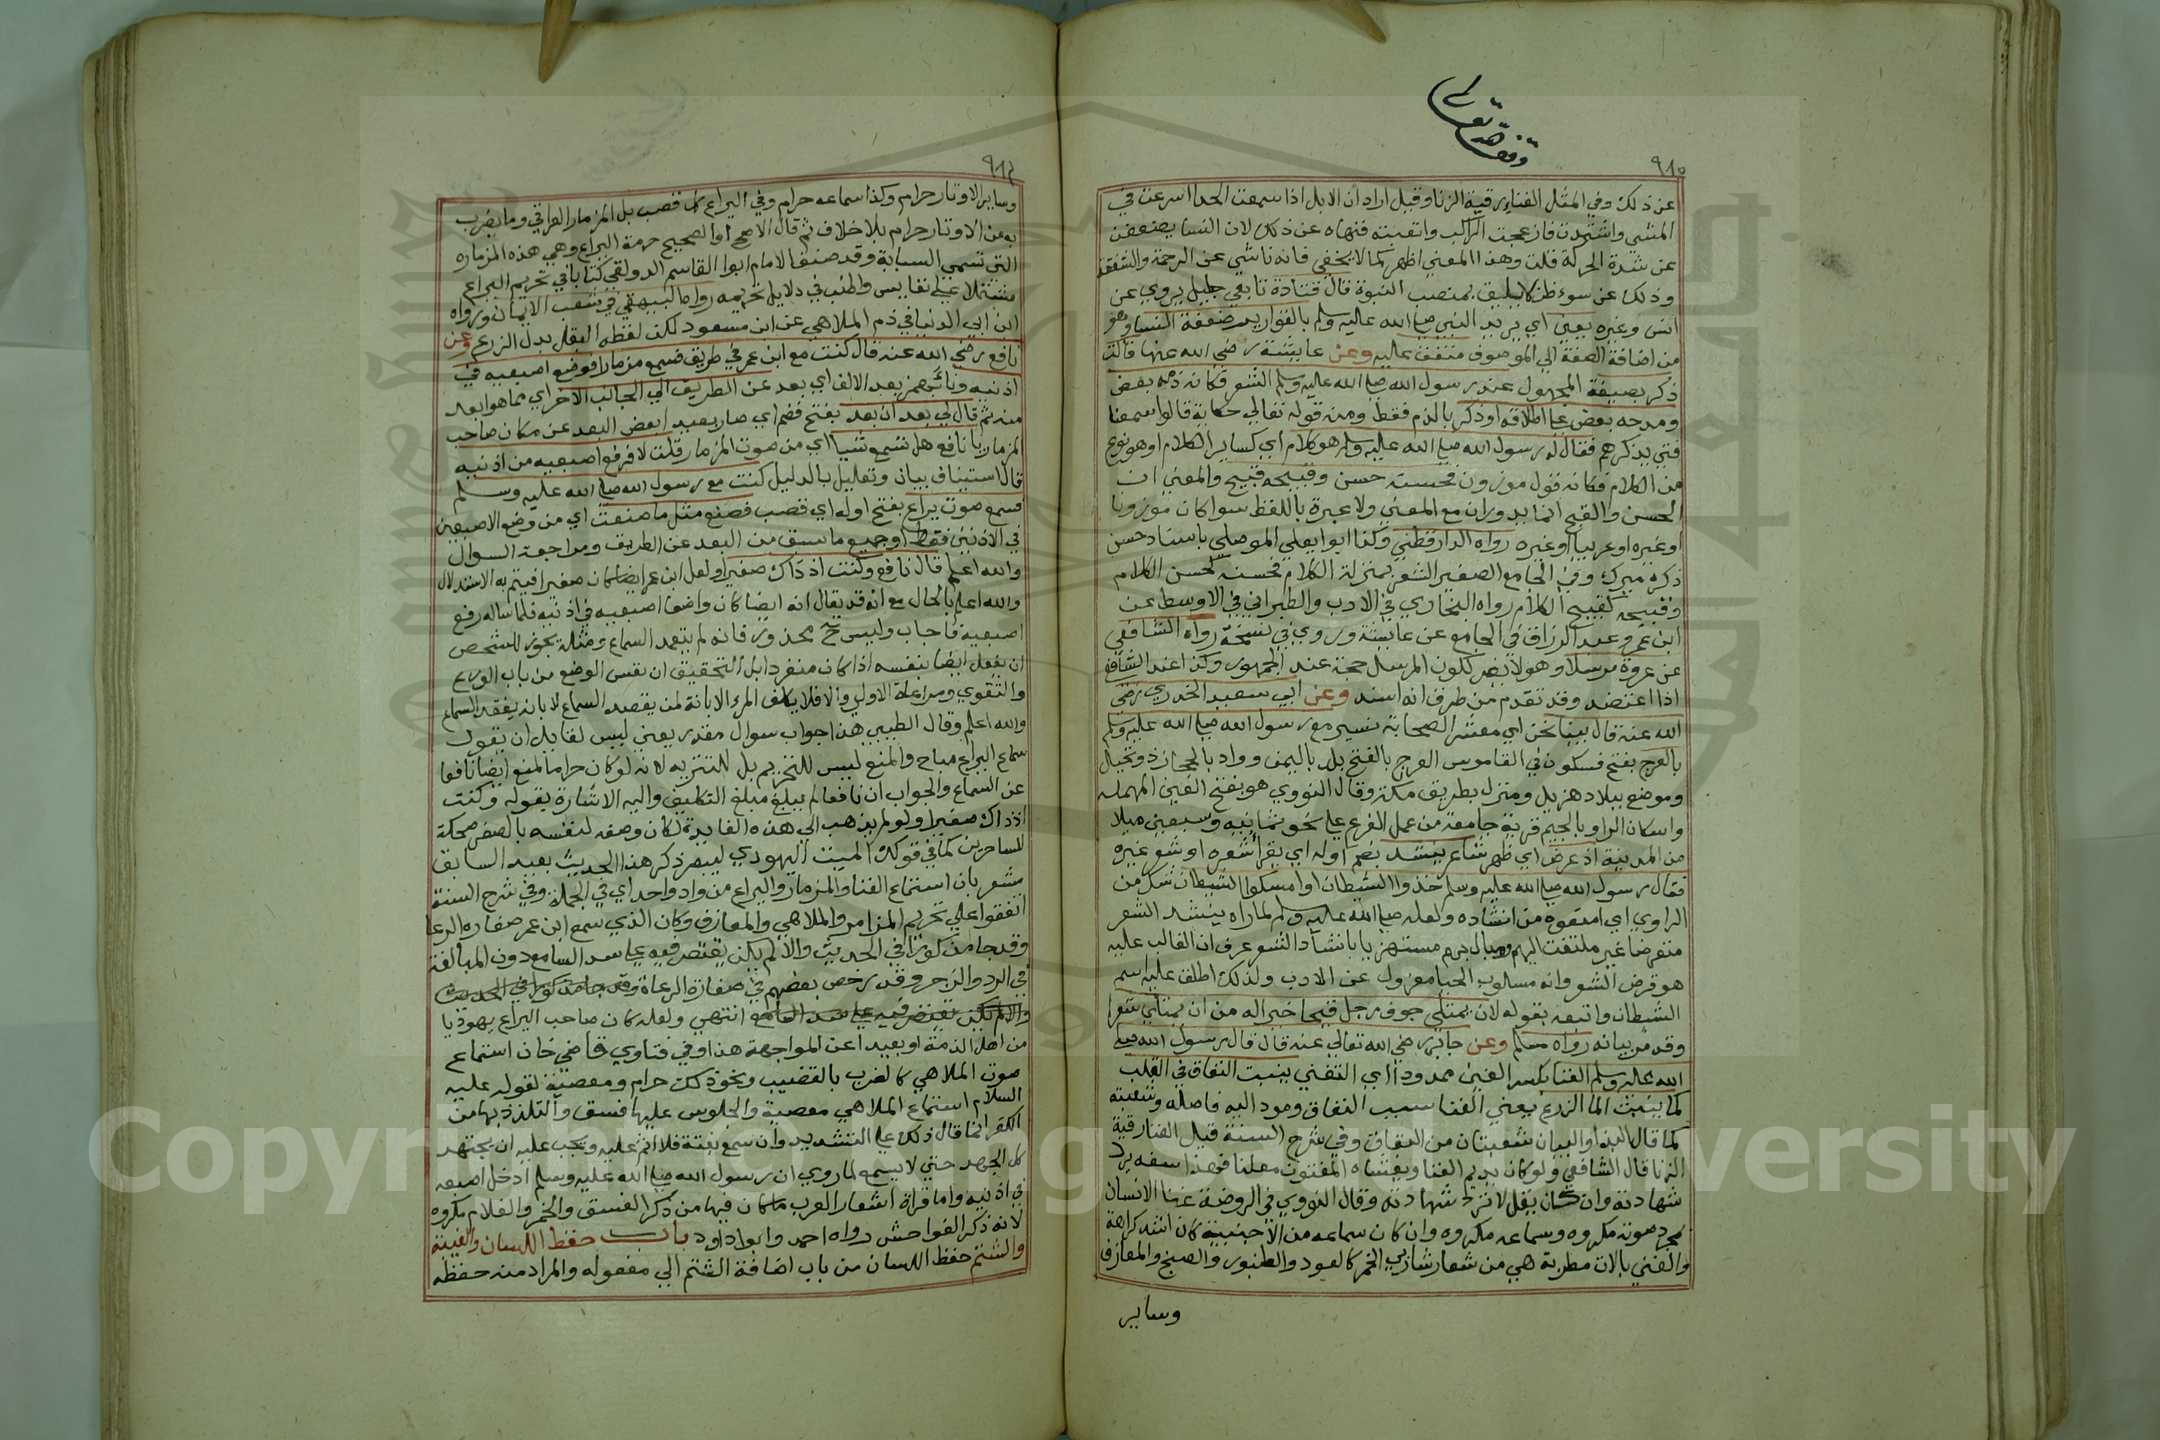 وقف لله تعالى
٩١٥
عن ذلك وفي المثل الغناء رقية الزنا وقيل اراد ان الابل اذا سمعت الحدا اسرعت في
المشي واشتدت فازعجت الراكب واتعبته فنهاه عن ذلك لان النسا يضعفن
عن شدة الحركة قلت وهذا المعني اظهر كما لا يخفي فانه ناشي عن الرحمة والشفقة
وذلك عن سوء ظن لا يليق بمنصب النبوة قال قتادة تابعي جليل يروي عن
انس وغيره يعني اي يريد النبي صلي الله عليه وسلم بالقوارير ضعفة النسا وهو
من اضافة الصفة الي الموصوف متفق عليه وعن عايشة رضي الله عنها قالت
ذكر بصيغة المجهول عند رسول الله صلي الله عليه وسلم الشعر فكانه ذمه بعض
ومدحه بعض علي اطلاقه او ذكر بالذم فقط ومنه قوله تعالي حكاية قالوا سمعنا
فتي يذكرهم فقال له رسول الله صلي الله عليه وسلم هو كلام اي كساير الكلام او هو نوع
من الكلام فكانه قول موزون فحسنه حسن وقبيحه قبيح والمعني ان
الحسن والقبح انما يدوران مع المعني ولا عبرة باللفظ سوا كان موزونا
او غيره او عربيا او غيره رواه الدارقطني وكذا ابو يعلي الموصلي باسناد حسن
ذكره ميرك وفي الجامع الصغير الشعر بمنزلة الكلام فحسنه كحسن الكلام
وقبيحه كقبيح الكلام رواه البخاري في الادب والطبراني في الاوسط عن
ابن عمرو عبد الرزاق في الجامع عن عايشة وروي في نسخة رواه الشافعي
عن عروة مرسلا وهو لا يضر لكون المرسل حجة عند الجمهور وكذا عند الشافعي
اذا اعتضد وقد تقدم من طرق انه اسند وعن ابي سعيد الخدري رضي
الله عنه قال بينا نحن اي معشر الصحابة نسير مع رسول الله صلي الله عليه وسلم
بالعرج بفتح فسكون في القاموس العرج بالفتح بلد باليمن وواد بالحجاز ذو نخيل
وموضع ببلاد هزيل ومنزل بطريق مكة وقال النووي هو بفتح العين المهملة
واسكان الراو بالجيم قرية جامعة من عمل الفرع علي نحو ثمانية وسبعين ميلا
من المدينة اذ عرض اي ظهر شاعر ينشد بضم اوله اي يقرأ شعره او شعر غيره
فقال رسول الله صلي الله عليه وسلم خذوا الشيطان او امسكوا الشيطان شك من
الراوي اي امنعوه من انشاده ولعله صلي الله عليه وسلم لما راه ينشد الشعر
متعرضا غير ملتفت اليهم ومبال بهم مستهزيا بانشاد الشعر عرف ان الغالب عليه
هو قرض الشعر وانه مسلوب الحيا معزول عن الادب ولذلك اطلق عليه اسم
الشيطان واتبعه بقوله لان يمتلي جوف رجل قيحا خير له من ان يمتلي شعرا
وقد مر بيانه رواه مسلم وعن جابر رضي الله تعالي عنه قال قال رسول الله صلي
الله عليه وسلم الغنا بكسر الغين ممدودا اي التغني ينبت النفاق في القلب
كما ينبت الما الزرع يعني الغنا سبب النفاق ومود اليه فاصله وشعبته
كما قال البذا والبيان شعبتان من النفاق وفي شرح السنة قيل الغنا رقية
الزنا قال الشافعي ولو كان يديم الغنا ويغشاه المغنون معلنا فهذا سفه يرد
شهادته وان كان يقل لا ترد شهادته وقال النووي في الروضة غنا الانسان
بمجرد صوته مكروه وسماعه مكروه وان كان سماعه من الاجنبية كان اشد كراهة
والغني بالات مطربة هي من شعار شاربي الخمر كالعود والطنبور والصنج والمعازف
وساير
٩١٤
وساير الاوتار حرام وكذا سماعه حرام وفي اليراع كل قصب بل المزمار العراقي وما يضرب
به من الاوتار حرام بلا خلاف ثم قال الاصح او الصحيح حرمة اليراع وهي هذه المزماره
التي تسمي السبابة وقد صنف الامام ابو القاسم الدولقي كتابا في تحريم اليراع
مشتملا علي نفايس واطنب في دلايل تحريمه رواه البيهقي في شعب الايمان ورواه
ابن ابي الدنيا في ذم الملاهي عن ابن مسعود لكن لفظه البقل بدل الزرع وعن
نافع رضي الله عنه قال كنت مع ابن عمر في طريق فسمع مزمارا فوضع اصبعيه في
اذنيه وناي بهمز بعد الالف اي بعد عن الطريق الي الجانب الاخر اي مما هو ابعد
منه ثم قال لي بعد ان بعد بفتح فضم اي صار بعيدا بعض البعد عن مكان صاحب
المزمار يا نافع هل تسمع شيا اي من صوت المزمار قلت لا فرفع اصبعيه من اذنيه
قال استيناف بيان وتعليل بالدليل كنت مع رسول الله صلي الله عليه وسلم
فسمع صوت يراع بفتح اوله اي قصب فصنع مثل ما صنعت اي من وضع الاصبعين
في الاذنين فقط او جميع ما سبق من البعد عن الطريق ومراجعة السوال
والله اعلم قال نافع وكنت اذ ذاك صغيرا ولعل ابن عمر ايضا كان صغيرا فيتم به الاستدلال
والله اعلم بالحال مع انه قد يقال انه ايضا كان واضعا اصبعيه في اذنيه فلما ساله رفع
اصبعيه فاجاب وليس ح محذور فانه لم يتعمد السماع ومثله يجوز للشخص
ان يفعل ايضا بنفسه اذا كان منفردا بل التحقيق ان نفس الوضع من باب الورع
والتقوي ومراعاة الاولي والا فلا يكلف المرء الا بانه لمن يقصد السماع لا بانه يفقد السماع
والله اعلم وقال الطيبي هذا جواب سوال مقدر يعني ليس لقايل ان يقول
سماع اليراع مباح والمنع ليس للتحريم بل للتنزيه لانه لو كان حراما لمنع ايضا نافعا
عن السماع والجواب ان نافعا لم يبلغ مبلغ التكليف واليه الاشارة بقوله وكنت
اذ ذاك صغيرا ولو لم يذهب الي هذه الفايدة لكان وصفه لنفسه بالصغر ضحكة
للساخرين كما في قولك الميت اليهودي ليبصر ذكر هذا الحديث بعيد السابق
مشعر بان استماع الغنا والمزمار واليراع من واد واحد اي في الجملة وفي شرح السنة
اتفقوا علي تحريم المزامر والملاهي والمعازف وكان الذي سمع ابن عمر صفارة الرعا
وقد جا مذكورا في الحديث والا لم يكن يقتصر فيه علي سد السامع دون المبالغة
في الرد والزجر وقد رخص بعضهم في صفارة الرعاة وقد جا مذكورا في الحديث
والا لم يكن يقتصر فيه علي سد السامع انتهي ولعله كان صاحب اليراع يهوديا
من اهل الذمة او بعيدا عن المواجهة هذا وفي فتاوي قاضي خان استماع
صوت الملاهي كالضرب بالقضيب ونحو ذلك حرام ومعصية لقوله عليه
السلام استماع الملاهي معصية والجلوس عليها فسق والتلذذ بها من
الكفر انما قال ذلك علي التشديد وان سمع بغتة فلا اثم عليه ويجب عليه ان يجتهد
كل الجهد حتي لا يسمع لما روي ان رسول الله صلي الله عليه وسلم ادخل اصبعه
في اذنيه واما قراة اشعار العرب ما كان فيها من ذكر الفسق والخمر والغلام مكروه
لانه ذكر الفواحش رواه احمد وابو داود باب حفظ اللسان والغيبة
والشتم حفظ اللسان من باب اضافة الشتم الي مفعوله والمراد منه حفظه
Copyright © King Saud University